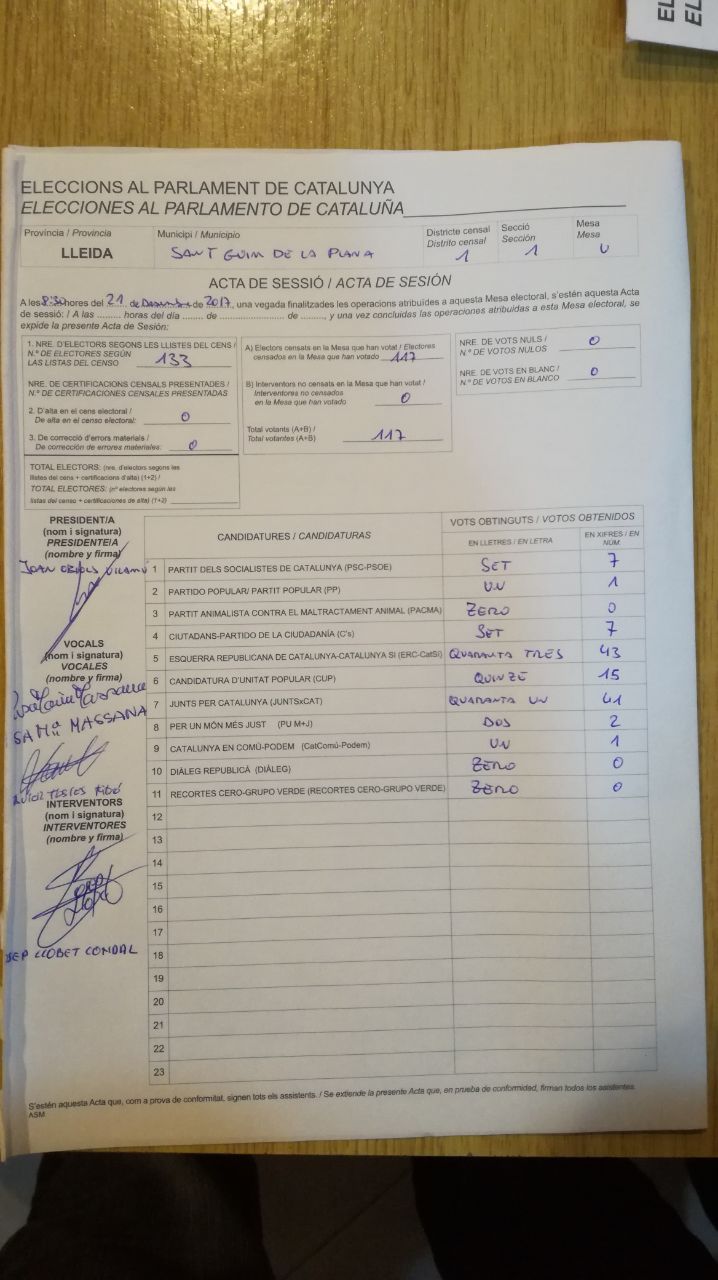 EL
EL
ELECCIONS AL PARLAMENT DE CATALUNYA
ELECCIONES AL PARLAMENTO DE CATALUÑA
Província / Provincia
LLEIDA
Municipi / Municipio
SANT GUIM DE LA PLANA
Districte censal
Distrito censal
1
Secció
Sección
1
Mesa
Mesa
U
ACTA DE SESSIÓ / ACTA DE SESIÓN
A les 8:30 hores del 21 de Desembre de 2017, una vegada finalitzades les operacions atribuïdes a aquesta Mesa electoral, s'estén aquesta Acta
de sessió: / A las ......... horas del día ....... de ....................... de ........, y una vez concluidas las operaciones atribuidas a esta Mesa electoral, se
expide la presente Acta de Sesión:
1. NRE. D'ELECTORS SEGONS LES LLISTES DEL CENS /
N.º DE ELECTORES SEGÚN
LAS LISTAS DEL CENSO 133
NRE. DE CERTIFICACIONS CENSALS PRESENTADES /
N.º DE CERTIFICACIONES CENSALES PRESENTADAS
2. D'alta en el cens electoral /
De alta en el censo electoral: 0
3. De correcció d'errors materials /
De corrección de errores materiales: 0
TOTAL ELECTORS: (nre. d'electors segons les
llistes del cens + certificacions d'alta) (1+2) /
TOTAL ELECTORES: (nº electores según las
listas del censo + certificaciones de alta) (1+2)
A) Electors censats en la Mesa que han votat / Electores
censados en la Mesa que han votado 117
B) Interventors no censats en la Mesa que han votat /
Interventores no censados
en la Mesa que han votado 0
Total votants (A+B) /
Total votantes (A+B) 117
NRE. DE VOTS NULS /
N.º DE VOTOS NULOS 0
NRE. DE VOTS EN BLANC /
N.º DE VOTOS EN BLANCO 0
PRESIDENT/A
(nom i signatura)
PRESIDENTE/A
(nombre y firma)
JOAN
VOCALS
(nom i signatura)
VOCALES
(nombre y firma)
SA Mª MASSANA
INTERVENTORS
(nom i signatura)
INTERVENTORES
(nombre y firma)
SEP LLOBET CONDAL
CANDIDATURES / CANDIDATURAS
VOTS OBTINGUTS / VOTOS OBTENIDOS
EN LLETRES / EN LETRA
EN XIFRES / EN NÚM.
1 PARTIT DELS SOCIALISTES DE CATALUNYA (PSC-PSOE) SET 7
2 PARTIDO POPULAR/ PARTIT POPULAR (PP) UN 1
3 PARTIT ANIMALISTA CONTRA EL MALTRACTAMENT ANIMAL (PACMA) ZERO 0
4 CIUTADANS-PARTIDO DE LA CIUDADANÍA (C's) SET 7
5 ESQUERRA REPUBLICANA DE CATALUNYA-CATALUNYA SÍ (ERC-CatSí) QUARANTA TRES 43
6 CANDIDATURA D'UNITAT POPULAR (CUP) QUINZE 15
7 JUNTS PER CATALUNYA (JUNTSxCAT) QUARANTA UN 41
8 PER UN MÓN MÉS JUST (PU M+J) DOS 2
9 CATALUNYA EN COMÚ-PODEM (CatComú-Podem) UN 1
10 DIÀLEG REPUBLICÀ (DIÀLEG) ZERO 0
11 RECORTES CERO-GRUPO VERDE (RECORTES CERO-GRUPO VERDE) ZERO 0
12
13
14
15
16
17
18
19
20
21
22
23
S'estén aquesta Acta que, com a prova de conformitat, signen tots els assistents. / Se extiende la presente Acta que, en prueba de conformidad, firman todos los asistentes.
ASM